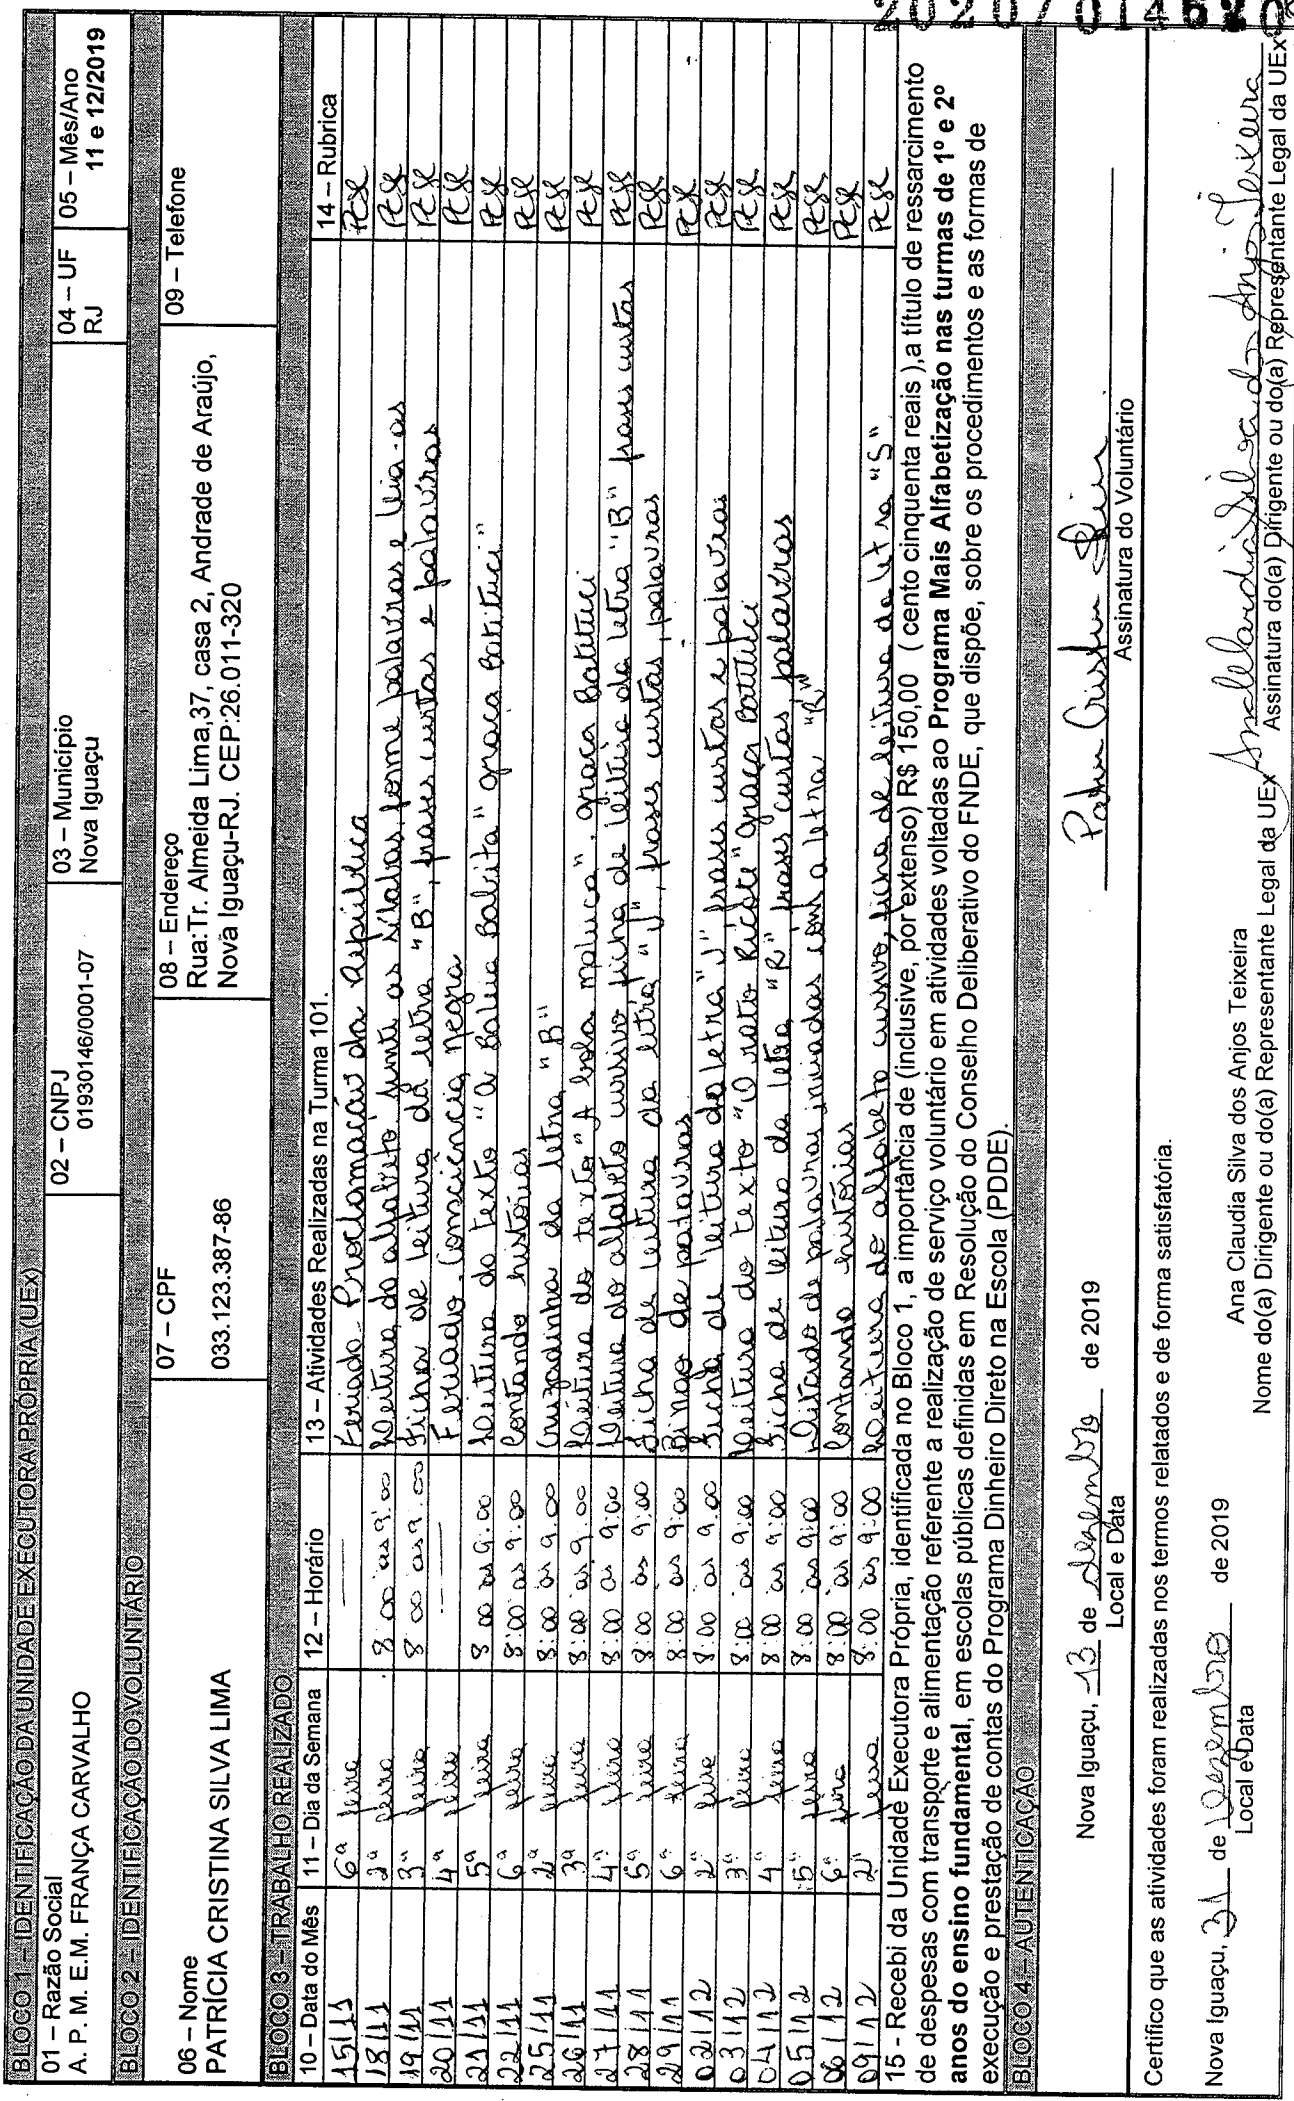 BLOCO 1 – IDENTIFICAÇÃO DA UNIDADE EXECUTORA PRÓPRIA (UEx)
01 – Razão Social
A. P. M. E.M. FRANÇA CARVALHO
02 – CNPJ
01930146/0001-07
03 – Município
Nova Iguaçu
04 – UF
RJ
05 – Mês/Ano
11 e 12/2019
BLOCO 2 – IDENTIFICAÇÃO DO VOLUNTÁRIO
06 – Nome
PATRÍCIA CRISTINA SILVA LIMA
07 – CPF
033.123.387-86
08 – Endereço
Rua:Tr. Almeida Lima,37, casa 2, Andrade de Araújo,
Nova Iguaçu-RJ. CEP:26.011-320
09 – Telefone
BLOCO 3 – TRABALHO REALIZADO
10 – Data do Mês 11 – Dia da Semana 12 – Horário 13 – Atividades Realizadas na Turma 101. 14 – Rubrica
15/11 6ª feira Feriado Proclamação da República
18/11 2ª feira 8:00 as 9:00 Leitura do alfabeto junta as sílabas, forme palavras e leia-as
19/11 3ª feira 8:00 as 9:00 Ficha de leitura da letra "B", frases curtas e palavras
20/11 4ª feira Feriado, Consciência negra
21/11 5ª feira 8:00 as 9:00 Leitura do texto "a Baleia Babita" graça Batituci"
22/11 6ª feira 8:00 as 9:00 Contando histórias
25/11 2ª feira 8:00 as 9:00 Cruzadinha da letra "B"
26/11 3ª feira 8:00 as 9:00 Leitura do texto "A bola maluca", graça Batituci
27/11 4ª feira 8:00 as 9:00 Leitura do alfabeto cursivo ficha de leitura da letra "B" frases curtas
28/11 5ª feira 8:00 as 9:00 Ficha de leitura da letra "J", frases curtas, palavras
29/11 6ª feira 8:00 as 9:00 Bingo de palavras
02/12 2ª feira 8:00 as 9:00 Ficha de leitura da letra "J" frases curtas e palavras
03/12 3ª feira 8:00 as 9:00 Leitura do texto "O rato Ricote" graça Batituci
04/12 4ª feira 8:00 as 9:00 Ficha de leitura da letra "R" frases curtas, palavras
05/12 5ª feira 8:00 as 9:00 Ditado de palavras iniciadas com a letra "R"
06/12 6ª feira 8:00 as 9:00 Contando histórias
09/12 2ª feira 8:00 as 9:00 Leitura do alfabeto cursivo, ficha de leitura da letra "S"
15 - Recebi da Unidade Executora Própria, identificada no Bloco 1, a importância de (inclusive, por extenso) R$ 150,00 ( cento cinquenta reais ),a título de ressarcimento
de despesas com transporte e alimentação referente a realização de serviço voluntário em atividades voltadas ao Programa Mais Alfabetização nas turmas de 1º e 2º
anos do ensino fundamental, em escolas públicas definidas em Resolução do Conselho Deliberativo do FNDE, que dispõe, sobre os procedimentos e as formas de
execução e prestação de contas do Programa Dinheiro Direto na Escola (PDDE).
BLOCO 4 – AUTENTICAÇÃO
Nova Iguaçu, 13 de dezembro de 2019
Local e Data
Assinatura do Voluntário
Certifico que as atividades foram realizadas nos termos relatados e de forma satisfatória.
Nova Iguaçu, 31 de Dezembro de 2019
Local e Data
Ana Claudia Silva dos Anjos Teixeira
Nome do(a) Dirigente ou do(a) Representante Legal da UEx
Ana Claudia Silva dos Anjos Teixeira
Assinatura do(a) Dirigente ou do(a) Representante Legal da UEx